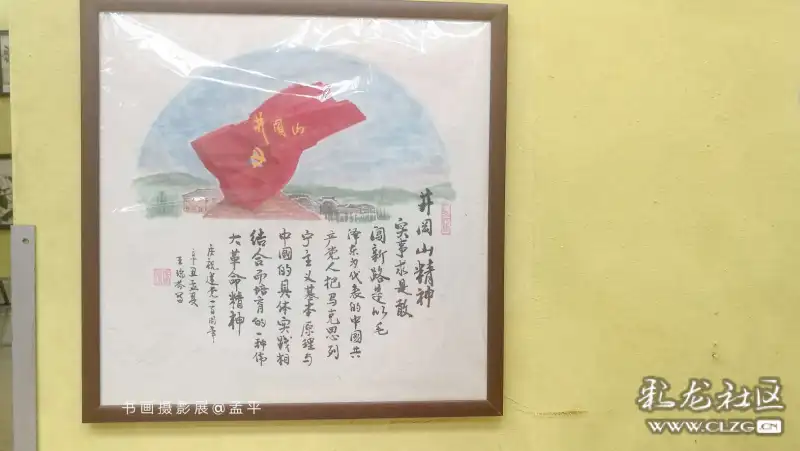 井冈山
井冈山精神
实事求是敢
闯新路是以毛
泽东为代表的中国共
产党人把马克思列
宁主义基本原理与
中国的具体实践相
结合而培育的一种伟
大革命精神
庆祝建党一百周年
辛丑孟夏
王
书画摄影展@孟平
彩龙社区
WWW.CLZG.CN